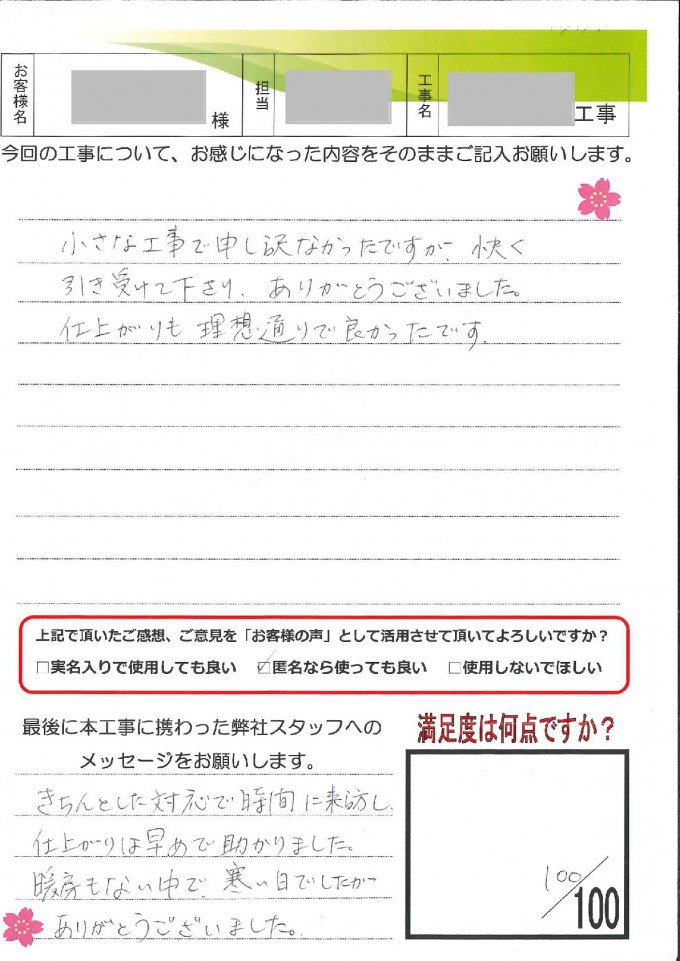 お客様名 様 担当 工事名 工事
今回の工事について、お感じになった内容をそのままご記入お願いします。
小さな工事で申し訳なかったですが、快く
引き受けて下さり、ありがとうございました。
仕上がりも理想通りで良かったです。
上記で頂いたご感想、ご意見を「お客様の声」として活用させて頂いてよろしいですか？
□実名入りで使用しても良い ☑匿名なら使っても良い □使用しないでほしい
最後に本工事に携わった弊社スタッフへの
メッセージをお願いします。
きちんとした対応で時間に来訪し、
仕上がりは早めで助かりました。
暖房もない中で、寒い日でしたが
ありがとうございました。
満足度は何点ですか？
100/100